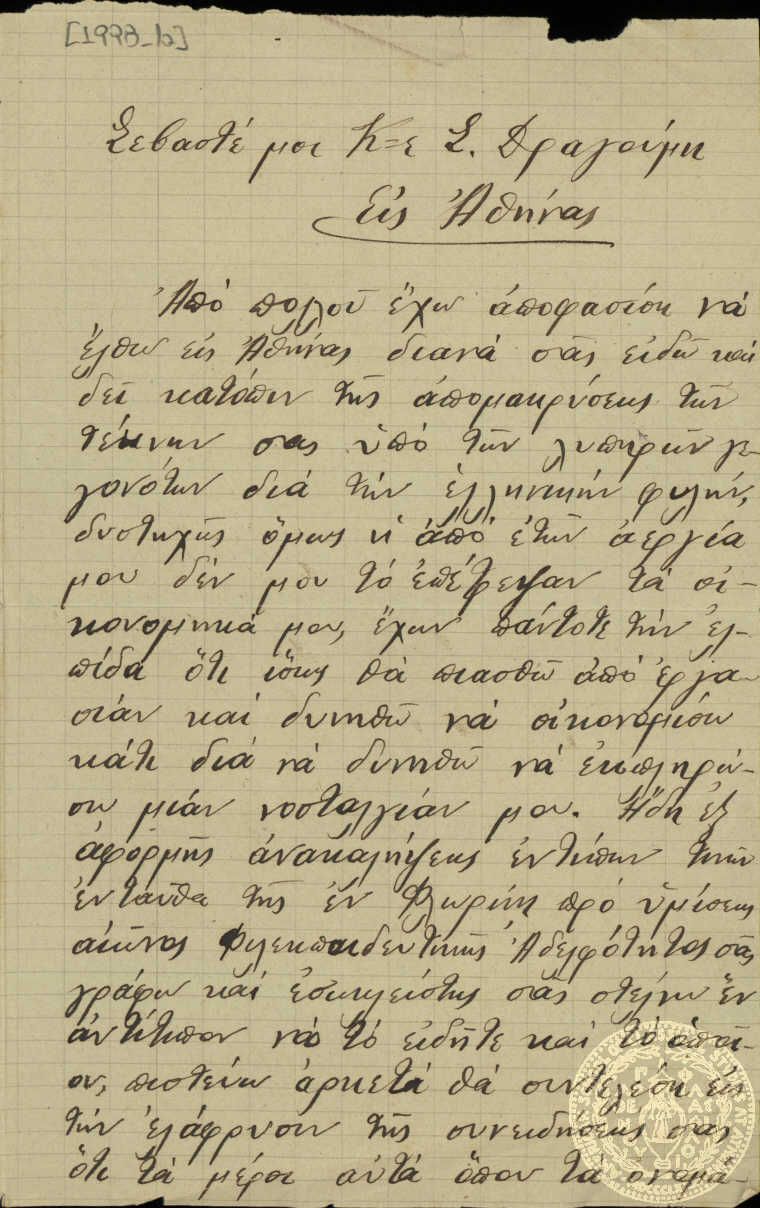 [1993_b]
Σεβαστέ μοι Κ=ε Σ. Δραγούμη
Εἰς Ἀθήνας
Ἀπό πολλοῦ ἔχω ἀποφασίση νά
ἔλθω εἰς Ἀθήνας διανά σᾶς εἰδῶ καί
δεῖ κατόπιν τῆς ἀπομακρύσεως τῶν
τέκνων σας ὑπό τῶν λυπηρῶν γε-
γονότων διά τήν ἑλληνικήν φυλήν,
δυστυχῆς ὅμως ἡ ἀπό ἐτῶν ἀεργία
μου δέν μου τό ἐπέτρεψαν τά οἰ-
κονομηκά μου, ἔχων πάντοτε τήν ἐλ-
πίδα ὅτι ἴσως θά πιασθῶ ἀπό ἐργα-
σίαν καί δυνηθῶ νά οἰκονομίσω
κάτι διά νά δυνηθῶ νά ἐκπληρώ-
σω μιάν νοσταλγίαν μου. Ἤδη ἐξ
ἀφορμῆς ἀνακαλήψεως ἐντύπων
ἐνταῦθα τῆς ἐν Φλωρίνῃ πρό ἡμίσεως
αἰῶνος Φιλεκπαιδευτικῆς Ἀδελφότητος σᾶς
γράφω καί ἐσωκλείστως σᾶς στέλνω ἕν
ἀντίτυπον νά τό εἰδῆτε καί τό ὁποῖ-
ον, πιστεύω ἀρκετά θά συντελέσῃ εἰς
τήν ἐλάφρυσιν τῆς συνειδήσεως σας
ὅτι τά μέροι αὐτά ὅπου τά ὀνομα-